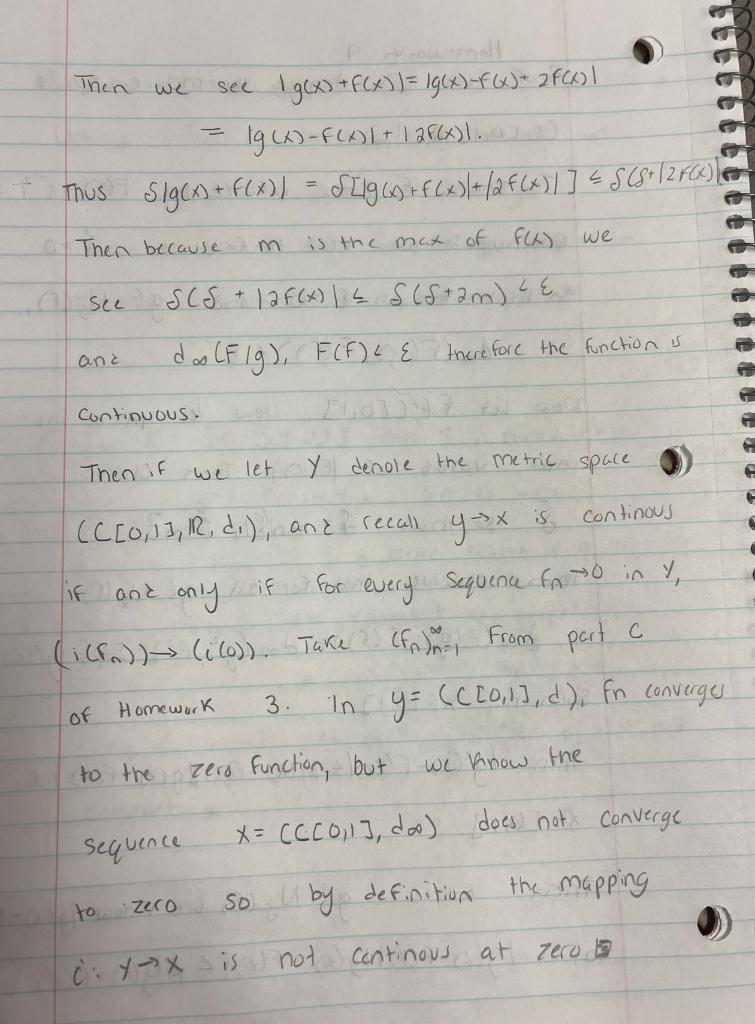 Then we see |g(x)+f(x)| = |g(x)-f(x)+2f(x)|
= |g(x)-f(x)|+|2f(x)|.
Thus δ|g(x)+f(x)| = δ[|g(x)+f(x)|+|2f(x)|] ≤ δ(δ+|2f(x)|
Then because m is the max of f(x) we
see δ(δ + |2f(x)| ≤ δ(δ+2m) < ε
and d∞(F(g), F(f) < ε therefore the function is
continuous.
Then if we let Y denote the metric space
(C[0,1], ℝ, d₁), and recall y→x is continous
if and only if for every sequence fn→0 in Y,
(i(fn))→(i(0)). Take (fn)∞n=1 From part C
of Homework 3. In y= (C[0,1], d), fn converges
to the zero function, but we know the
sequence X= (C[0,1], d∞) does not converge
to zero so by definition the mapping
i: Y→X is not continous at zero